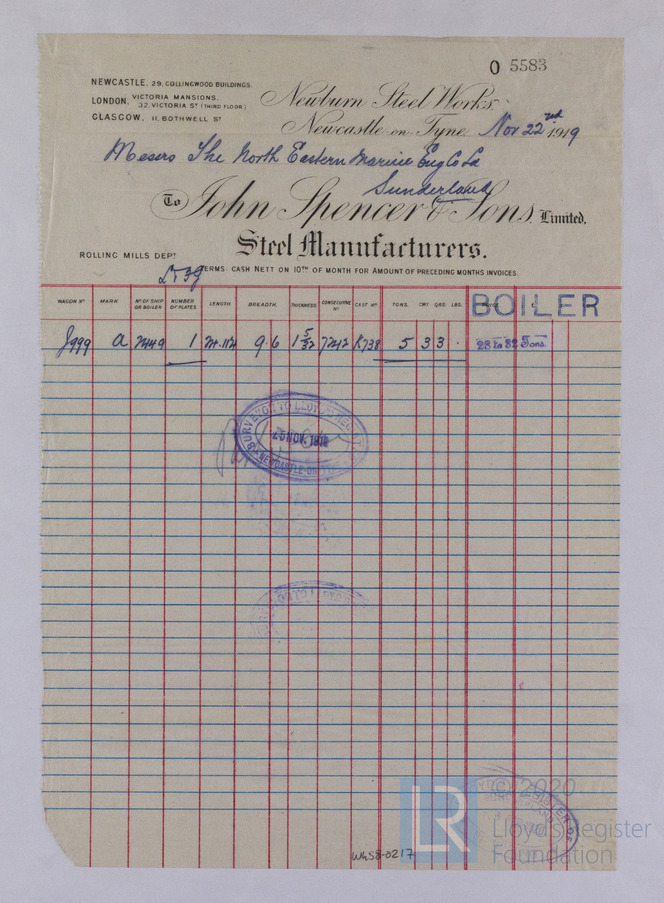 O 5583
NEWCASTLE. 29, COLLINGWOOD BUILDINGS.
LONDON, VICTORIA MANSIONS,
32, VICTORIA ST (THIRD FLOOR)
GLASGOW, 11, BOTHWELL ST
Newburn Steel Works,
Newcastle-on-Tyne, Nov 22nd 1919
Messrs The North Eastern Marine Eng Co Ld
Sunderland
To John Spencer & Sons, Limited,
Steel Manufacturers.
ROLLING MILLS DEPT
TERMS: CASH NETT ON 10TH OF MONTH FOR AMOUNT OF PRECEDING MONTHS INVOICES.
WAGON No MARK No OF SHIP OR BOILER NUMBER OF PLATES LENGTH BREADTH THICKNESS CONSECUTIVE No CAST No TONS. CWT. QRS. LBS.
BOILER
1 9.6 1 5/32 7242 K738 5 3 3 .
28 to 32 Tons.
SURVEYOR TO LLOYD'S REGISTER
25 NOV. 1919
NEWCASTLE-ON-TYNE
© 2020
LR Lloyd's Register
Foundation
W658-0217